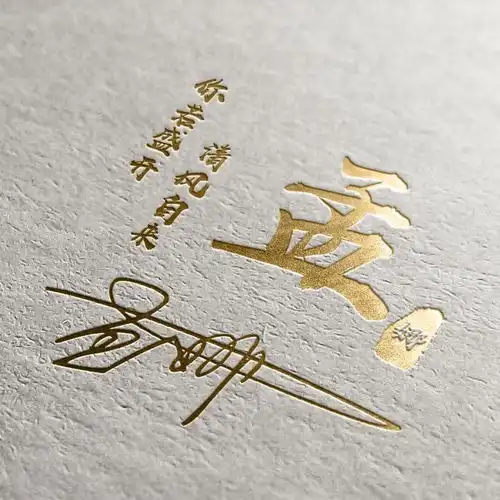 你若盛开
清风自来
娜